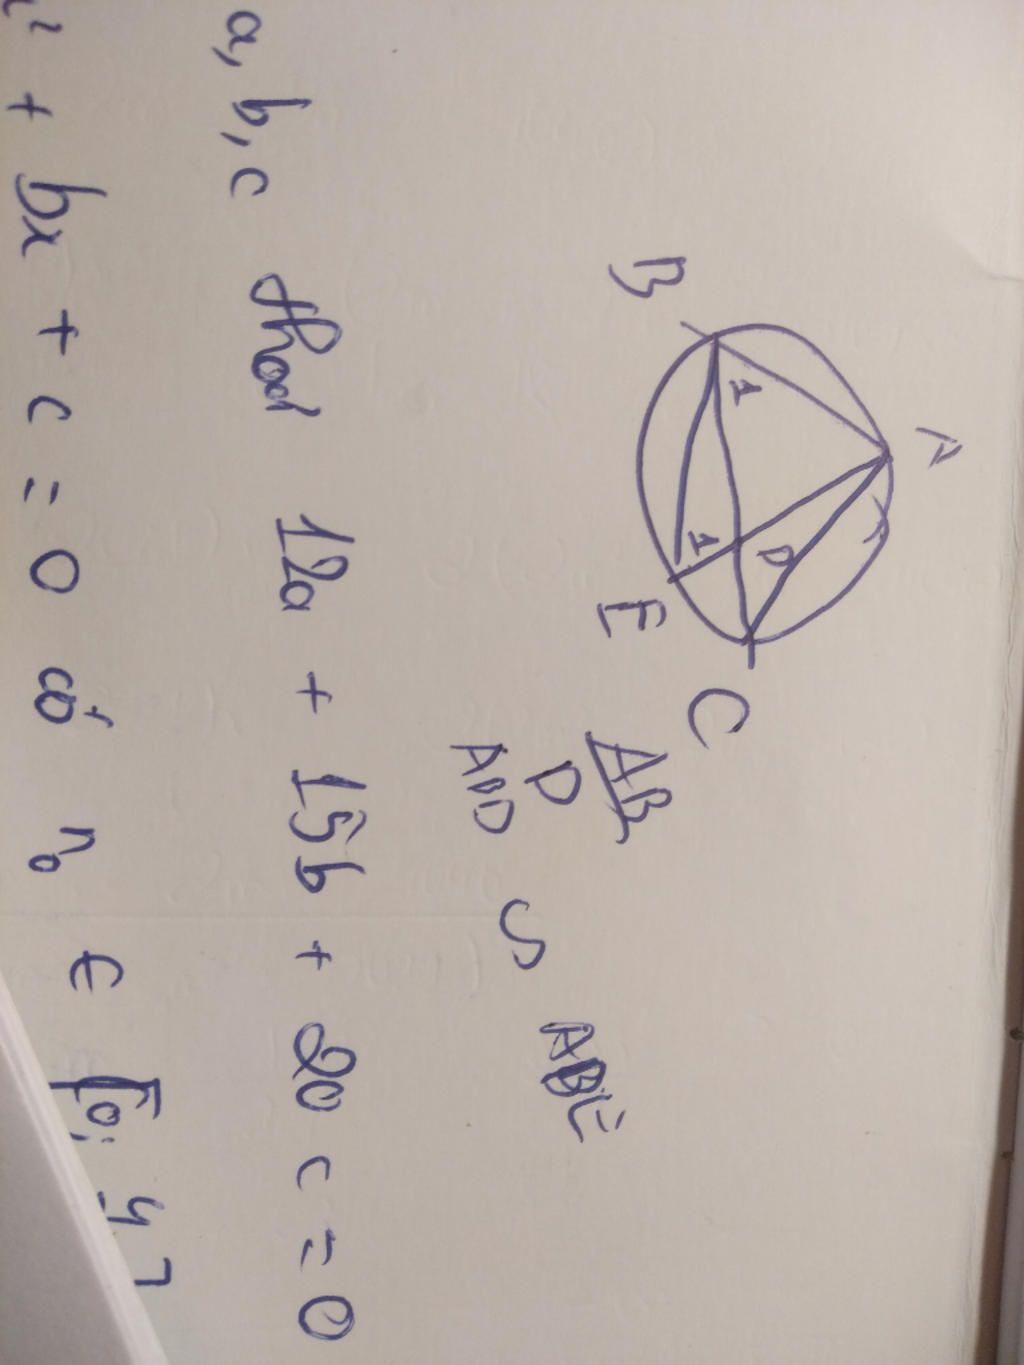 A
B
1
D
1
E
C
AB
D
ABD ∽ ABE
a, b, c thoả 12a + 15b + 20c = 0
x² + bx + c = 0 có n₀ ∈ [0;